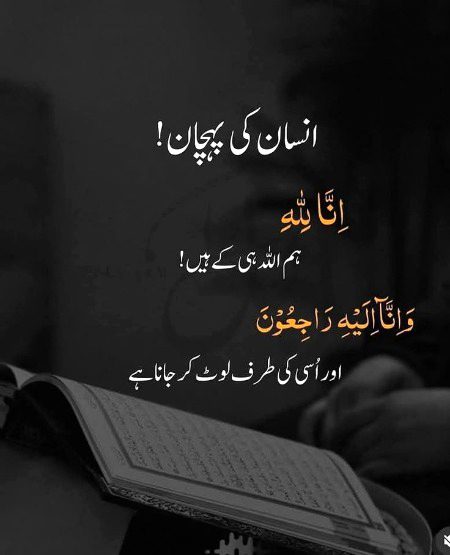 انسان کی پہچان!
اِنَّا لِلّٰهِ
ہم اللہ ہی کے ہیں!
وَاِنَّآ اِلَيْهِ رَاجِعُوْنَ
اور اُسی کی طرف لوٹ کر جانا ہے